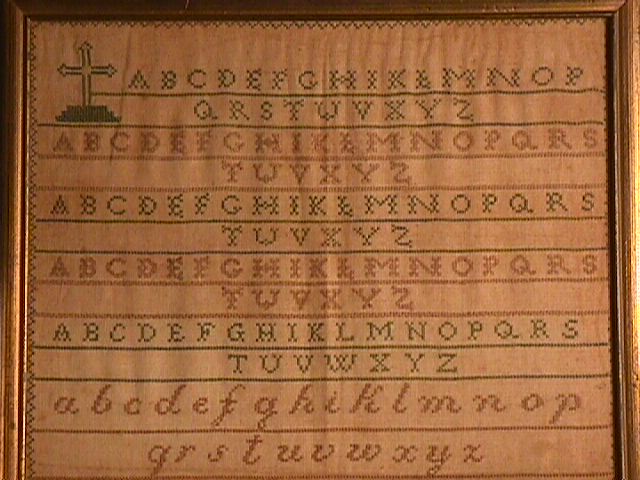 A B C D E F G H I K L M N O P
Q R S T U V X Y Z
A B C D E F G H I K L M N O P Q R S
T U V X Y Z
A B C D E F G H I K L M N O P Q R S
T U V X Y Z
A B C D E F G H I K L M N O P Q R S
T U V X Y Z
A B C D E F G H I K L M N O P Q R S
T U V W X Y Z
a b c d e f g h i k l m n o p
q r s t u v w x y z